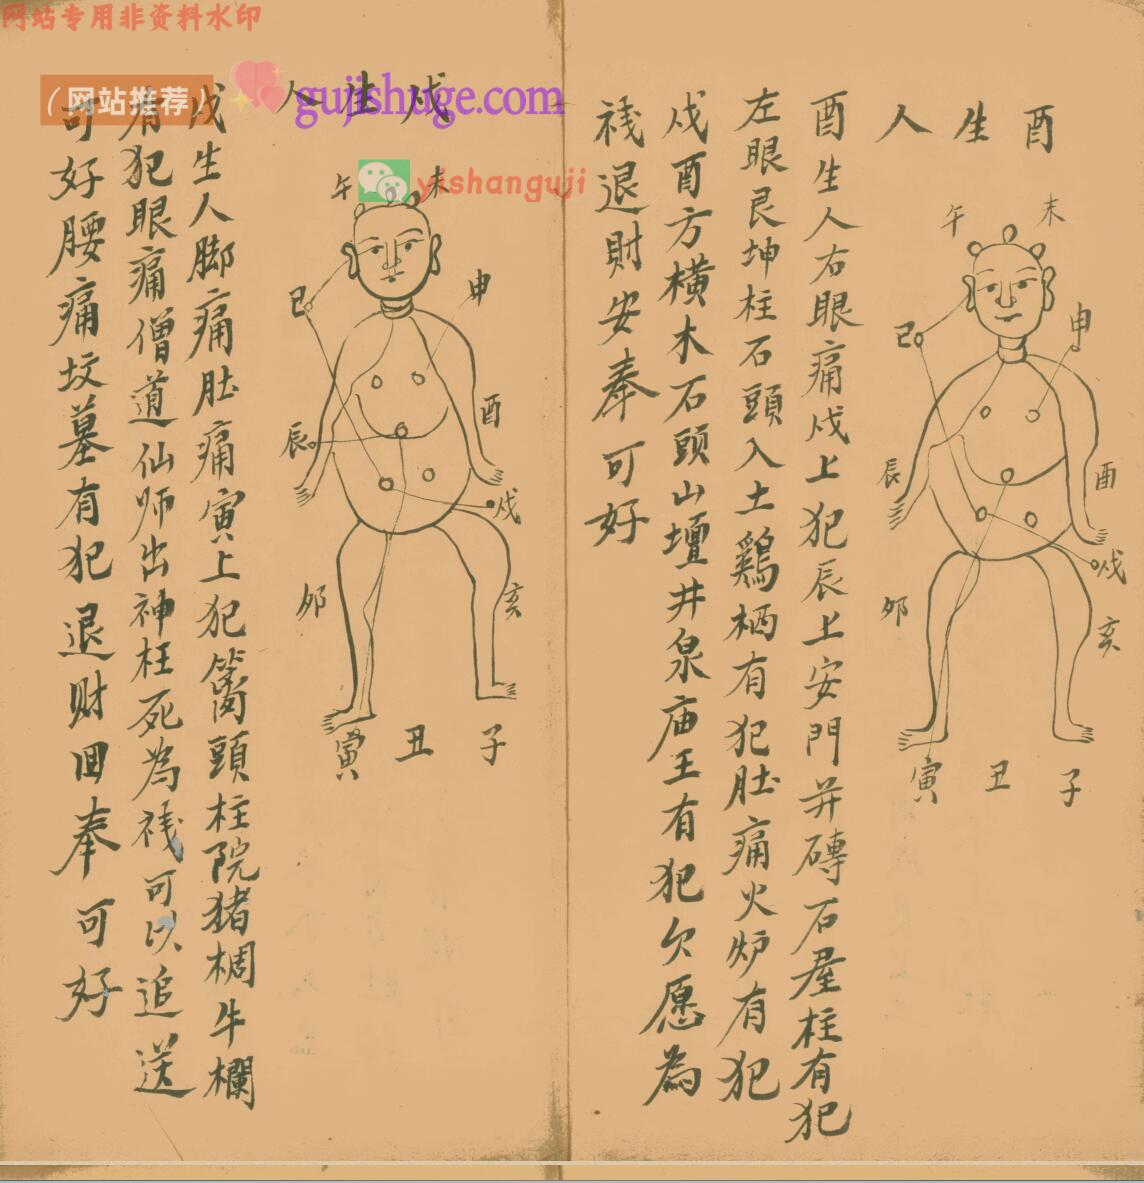 网站专用非资料水印
（网站推荐）
gujishuge.com
yishanguji
酉生人
午
未
巳
申
辰
酉
戌
卯
亥
寅
丑
子
酉生人右眼痛戌上犯辰上安門并磚石屋柱有犯
左眼艮坤柱石頭入土鷄栖有犯肚痛火炉有犯
戌酉方橫木石頭山壇井泉庙王有犯欠愿為
禐退財安奉可好
戌生人
午
未
巳
申
辰
酉
戌
卯
亥
寅
丑
子
戌生人脚痛肚痛寅上犯簥頭柱院猪椆牛欄
有犯眼痛僧道仙师出神枉死為禐可以追送
可好腰痛坟墓有犯退财回奉可好